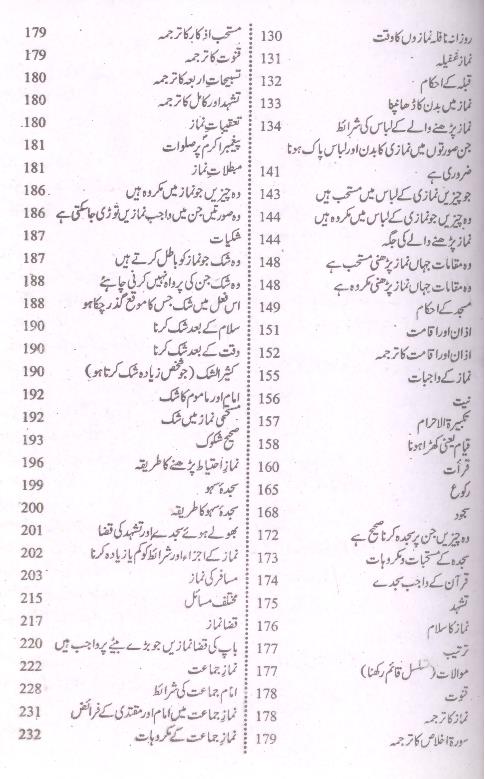 روزانہ نافلہ نمازوں کا وقت 130
نماز غفیلہ 131
قبلہ کے احکام 132
نماز میں بدن کا ڈھانپنا 133
نماز پڑھنے والے کے لباس کی شرائط 134
جن صورتوں میں نمازی کا بدن اور لباس پاک ہونا
ضروری ہے 141
جو چیزیں نمازی کے لباس میں مستحب ہیں 143
وہ چیزیں جو نمازی کے لباس میں مکروہ ہیں 144
نماز پڑھنے والے کی جگہ 144
وہ مقامات جہاں نماز پڑھنی مستحب ہے 148
وہ مقامات جہاں نماز پڑھنی مکروہ ہے 148
مسجد کے احکام 149
اذان اور اقامت 151
اذان اور اقامت کا ترجمہ 152
نماز کے واجبات 155
نیت 156
تکبیرۃ الاحرام 157
قیام یعنی کھڑا ہونا 158
قرأت 160
رکوع 165
سجود 168
وہ چیزیں جن پر سجدہ کرنا صحیح ہے 172
سجدہ کے مستحبات و مکروہات 173
قرآن کے واجب سجدے 174
تشہد 175
نماز کا سلام 176
ترتیب 177
موالات (تسلسل قائم رکھنا) 177
قنوت 178
نماز کا ترجمہ 178
سورۃ اخلاص کا ترجمہ 179
مستحب اذکار کا ترجمہ 179
قنوت کا ترجمہ 179
تسبیحات اربعہ کا ترجمہ 180
تشہد اور کامل کا ترجمہ 180
تعقیبات نماز 180
پیغمبر اکرمؐ پر صلوات 181
مبطلات نماز 181
وہ چیزیں جو نماز میں مکروہ ہیں 186
وہ صورتیں جن میں واجب نمازیں توڑی جاسکتی ہے 186
شکیات 187
وہ شک جو نماز کو باطل کرتے ہیں 187
وہ شک جن کی پرواہ نہیں کرنی چاہئے 188
اس فعل میں شک جس کا موقع گذر چکا ہو 188
سلام کے بعد شک کرنا 190
وقت کے بعد شک کرنا 190
کثیر الشک (جو شخص زیادہ شک کرتا ہو) 190
امام اور ماموم کا شک 192
مستحبی نماز میں شک 192
صحیح شکوک 193
نماز احتیاط پڑھنے کا طریقہ 196
سجدہ سہو 199
سجدہ سہو کا طریقہ 200
بھولے ہوئے سجدے اور تشہد کی قضا 201
نماز کے اجزاء اور شرائط کو کم یا زیادہ کرنا 202
مسافر کی نماز 203
مختلف مسائل 215
قضا نماز 217
باپ کی قضا نمازیں جو بڑے بیٹے پر واجب ہیں 220
نماز جماعت 222
امام جماعت کی شرائط 228
نماز جماعت میں امام اور مقتدی کے فرائض 231
نماز جماعت کے مکروہات 232